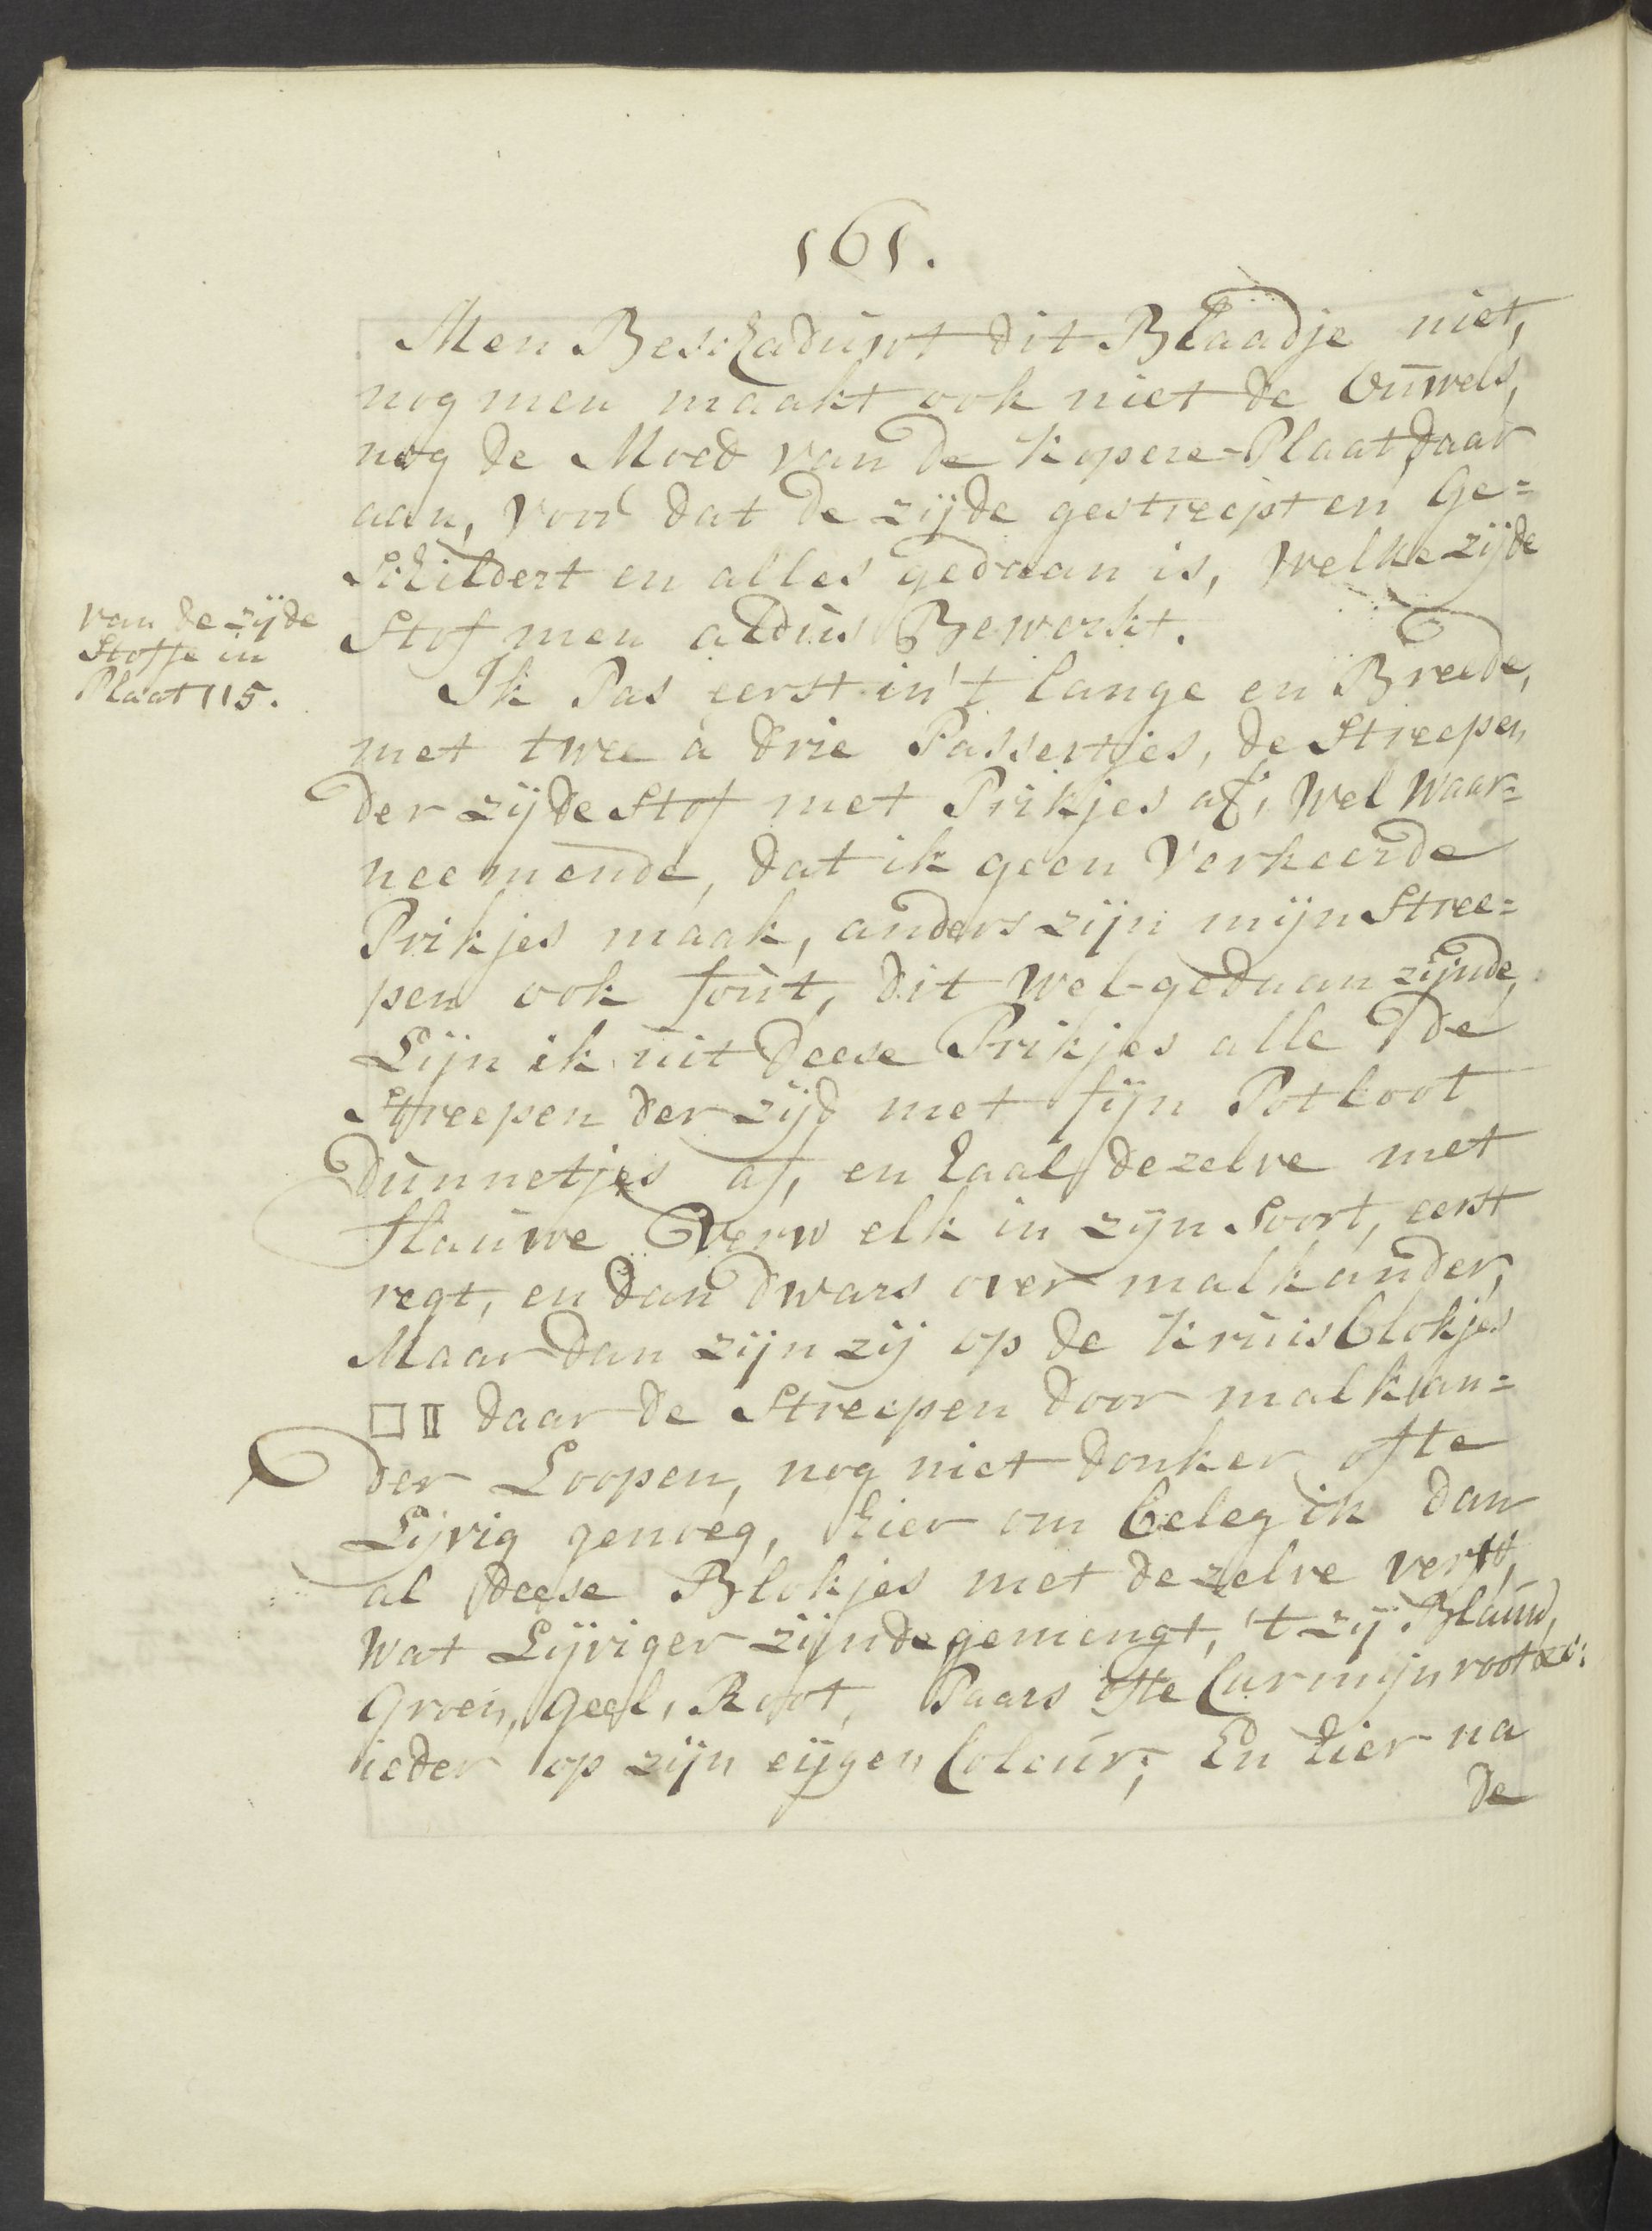 161.
Men Beschaduwt dit Blaadje niet,
nog men maakt ook niet de Ouwels,
nog de Moed van de kopere-Plaat daar
aan, voor dat de zijde gestreept en Ge=
Schildert en alles gedaan is, welke zijde
Stof men aldus Bewerkt.
van de zijde
Stoffe in
Plaat 115.
Ik Pas eerst in't lange en Breede,
met twee à drie Passertjes, de Streepen
der zijde Stof met Prikjes af, wel waar=
neemende, dat ik geen Verkeerde
Prikjes maak, anders zijn mijn Stree=
pen ook fout, dit wel-gedaan zijnde,
Lijn ik uit deese Prikjes alle de
Streepen der zijd met fijn Potloot
Dunnetjes af, en haal dezelve met
flauwe Verw elk in zijn Soort, eerst
regt, en dan dwars over malkander,
Maar dan zijn zij op de kruisblokjes
□ II daar de Streepen door malkan=
der Loopen, nog niet donker ofte
Lijvig genoeg, hier om beleg ik dan
al deese Blokjes met dezelve verw,
wat Lijviger zijnde gemengt, 't zij Blauw,
Groen, geel, Root, Paars ofte Carmijn root &c:
ieder op zijn eijgen Coleur; En hier na
de